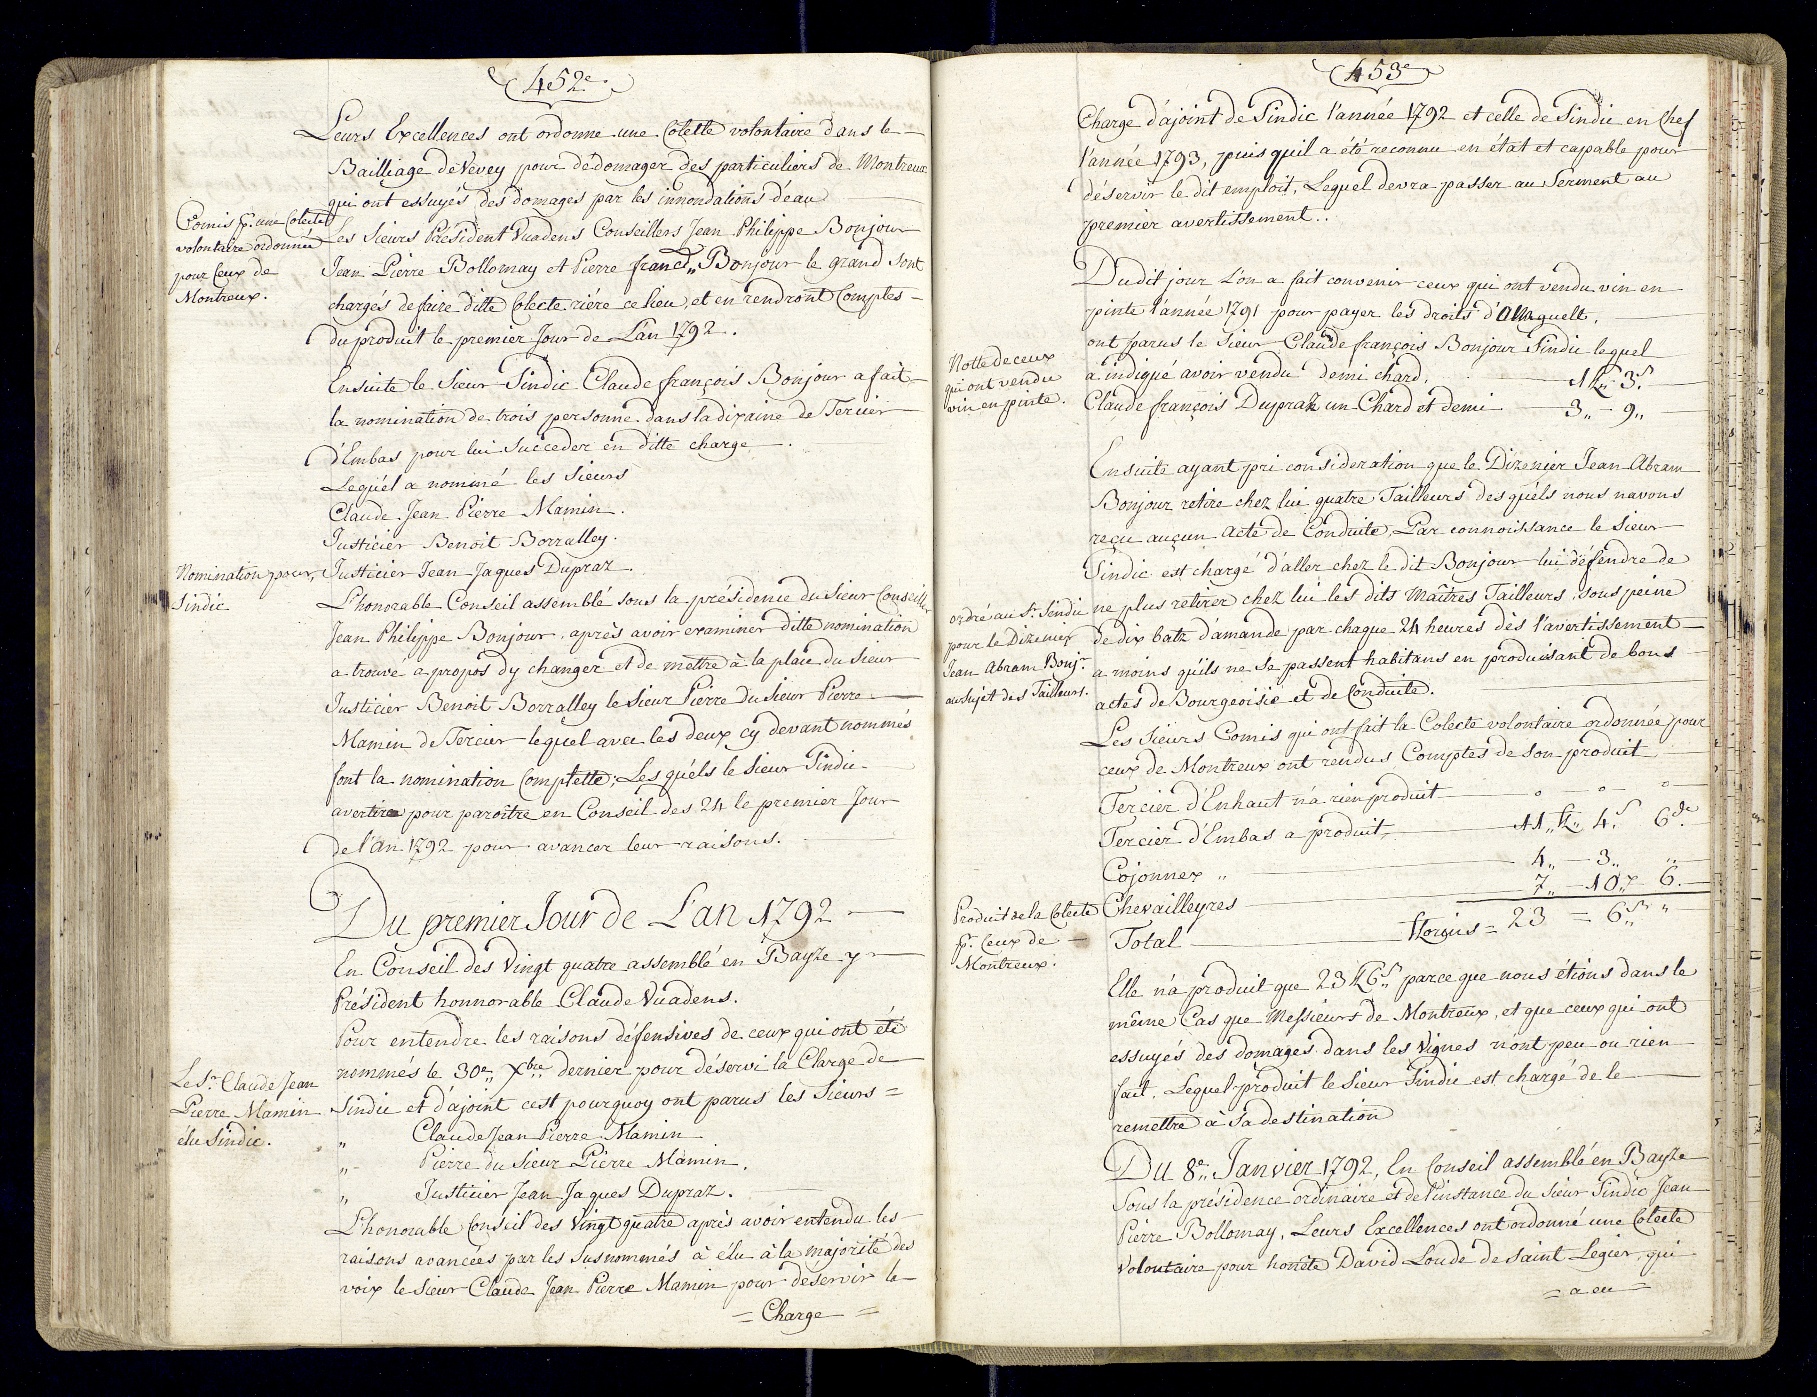 452e.
Leurs Excellences ont ordonne une Colette volontaire dans le
Bailliage de Vevey pour dédomager des particuliers de Montreux
qui ont essuyés des domages par les innondations d'eau
Comis pr. une Colecte
volontaire ordonnée
pour Ceux de
Montreux.
Les Sieurs Président Vuadens Conseillers Jean Philippe Bonjour
Jean Pierre Bollomay et Pierre francs. Bonjour le grand sont
chargés de faire ditte Colecte riére ce lieu, et en rendront Comptes
du produit le premier Jour de L'an 1792.
Ensuite le Sieur Sindic Claude françois Bonjour a fait
la nomination de trois personne dans la dixaine de Tercier
d'Embas pour lui Succeder en ditte charge.
Lequel a nommé les Sieurs
Claude Jean Pierre Mamin.
Justicier Benoit Borralley.
Nomination pour
Sindic
Justicier Jean Jaques Dupraz.
L'honorable Conseil assemblé sous la présidence du Sieur Conseiller
Jean Philippe Bonjour, après avoir examiner ditte nomination
a trouvé a propos d'y changer et de mettre à la place du Sieur
Justicier Benoit Borralley le Sieur Pierre du Sieur Pierre
Mamin de Tercier lequel avec les deux cy devant nommés
font la nomination Complette; Les quéls le Sieur Sindic
avertira pour paroître en Conseil des 24 le premier Jour
de l'an 1792 pour avancer leur raisons.
Du premier Jour de L'an 1792
En Conseil des Vingt quatre assemblé en Bayze y
Président honnorable Claude Vuadens.
Pour entendre les raisons défensives de ceux qui ont été
nommés le 30e. Xbre. dernier pour déservi la Charge de
Le Sr. Claude Jean
Pierre Mamin
élu Sindic.
Sindic et d'ajoint cest pourquoy ont parus les Sieurs =
" Claude Jean Pierre Mamin
" Pierre du Sieur Pierre Mamin.
" Justicier Jean Jaques Dupraz.
L'honorable Conseil des Vingt quatre après avoir entendu les
raisons avancées par les Susnommés à élu à la majorité des
voix le Sieur Claude Jean Pierre Mamin pour déservir le
= Charge =
453e
Charge d'ajoint de Sindic l'année 1792 et celle de Sindic en Chef
l'année 1793, puis quil a été reconnu en état et capable pour
déservir le dit emploit, Lequel devra passer au Serment au
premier avertissement..
Dudit jour L'on a fait convenir ceux qui ont vendu vin en
pinte l'année 1791 pour payer les droits d'Onguelt,
Notte de ceux
qui ont vendu
vin en pinte.
ont parus le Sieur Claude françois Bonjour Sindic lequel
a indiqué avoir vendu demi chard. 1 fl. 3 s.
Claude françois Dupraz un Chard et demi 3 " 9 "
Ensuite ayant pri consideration que le Dizenier Jean Abram
Bonjour retire chez lui quatre Tailleurs desquéls nous navons
reçu auçun acte de Conduite, Par connoissance le Sieur
Sindic est chargé d'aller chez le dit Bonjour lui défendre de
ordre au Sr. Sindic
pour le Dizenier
Jean Abram Bonjr.
au sujet des Tailleurs.
ne plus retirer chez lui les dits Maîtres Tailleurs, sous peine
de dix batz d'amande par chaque 24 heures dès l'avertissement
a moins qu'ils ne Se passent habitans en produisant de bons
actes de Bourgeoisie et de Conduite.
Les Sieurs Comis qui ont fait la Colecte volontaire ordonnée pour
ceux de Montreux ont rendus Comptes de Son produit
Terçier d'Enhaut n'a rien produit ° — ° — °
Tercier d'Embas a produit, 11 " fl. 4 s. 6 de
Cojonnex " 4 " — 3 " "
Chevailleyres 7 " — 10 " — 6
Produit de la Colecte
pr. Ceux de
Montreux.
Total florins = 23 = 6 s. "
Elle n'a produit que 23 fl 6 s. parce que nous étions dans le
même Cas que Messieurs de Montreux, et que ceux qui ont
essuyés des domages dans les Vignes n'ont peu ou rien
fait. Lequel produit le Sieur Sindic est chargé de le
remettre à Sa destination
Du 8e. Janvier 1792, En Conseil assemblé en Bayze
Sous la présidence ordinaire et de l'instance du Sieur Sindic Jean
Pierre Bollomay, Leurs Excellences ont ordonné une Colecte
Volontaire pour honête David Loude de Saint Legier, qui
= a eu =